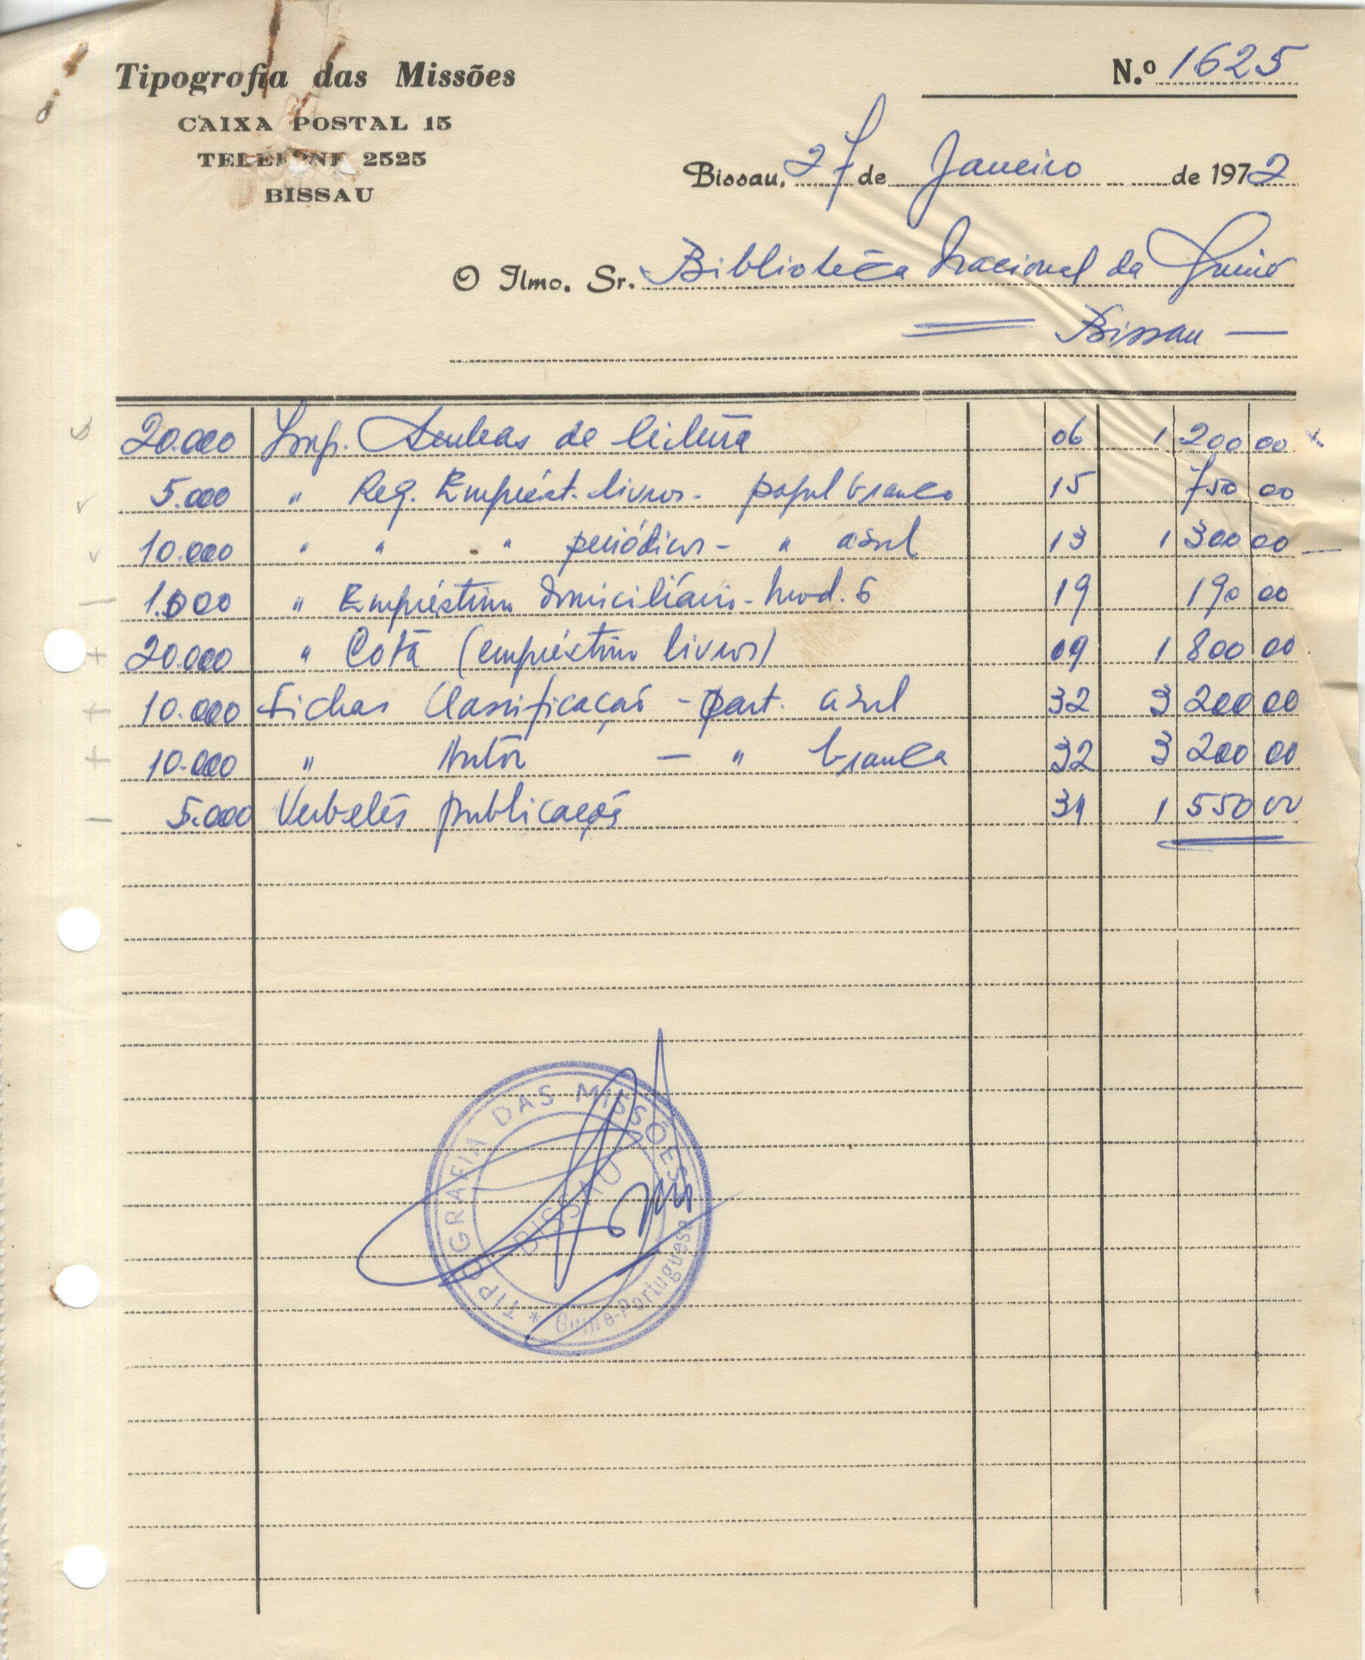 Tipografia das Missões
CAIXA POSTAL 15
TELEFONE 2525
BISSAU
N.º 1625
Bissau, 27 de Janeiro de 1972
O Ilmo. Sr. Biblioteca Nacional da Guiné
Bissau —
20.000 Imp. Senhas de leitura 06 1 200 00
5.000 " Req. Emprést. livros - papel branco 15 750 00
10.000 " " " periódicos - " azul 13 1 300 00
1.000 " Empréstimo domiciliário - Mod. 6 19 190 00
20.000 " Cota (empréstimo livros) 09 1 800 00
10.000 Fichas Classificação - cart. azul 32 3 200 00
10.000 " Autor — " branca 32 3 200 00
5.000 Verbetes publicações 31 1 550 00
TIPOGRAFIA DAS MISSÕES
BISSAU
* Guiné-Portuguesa